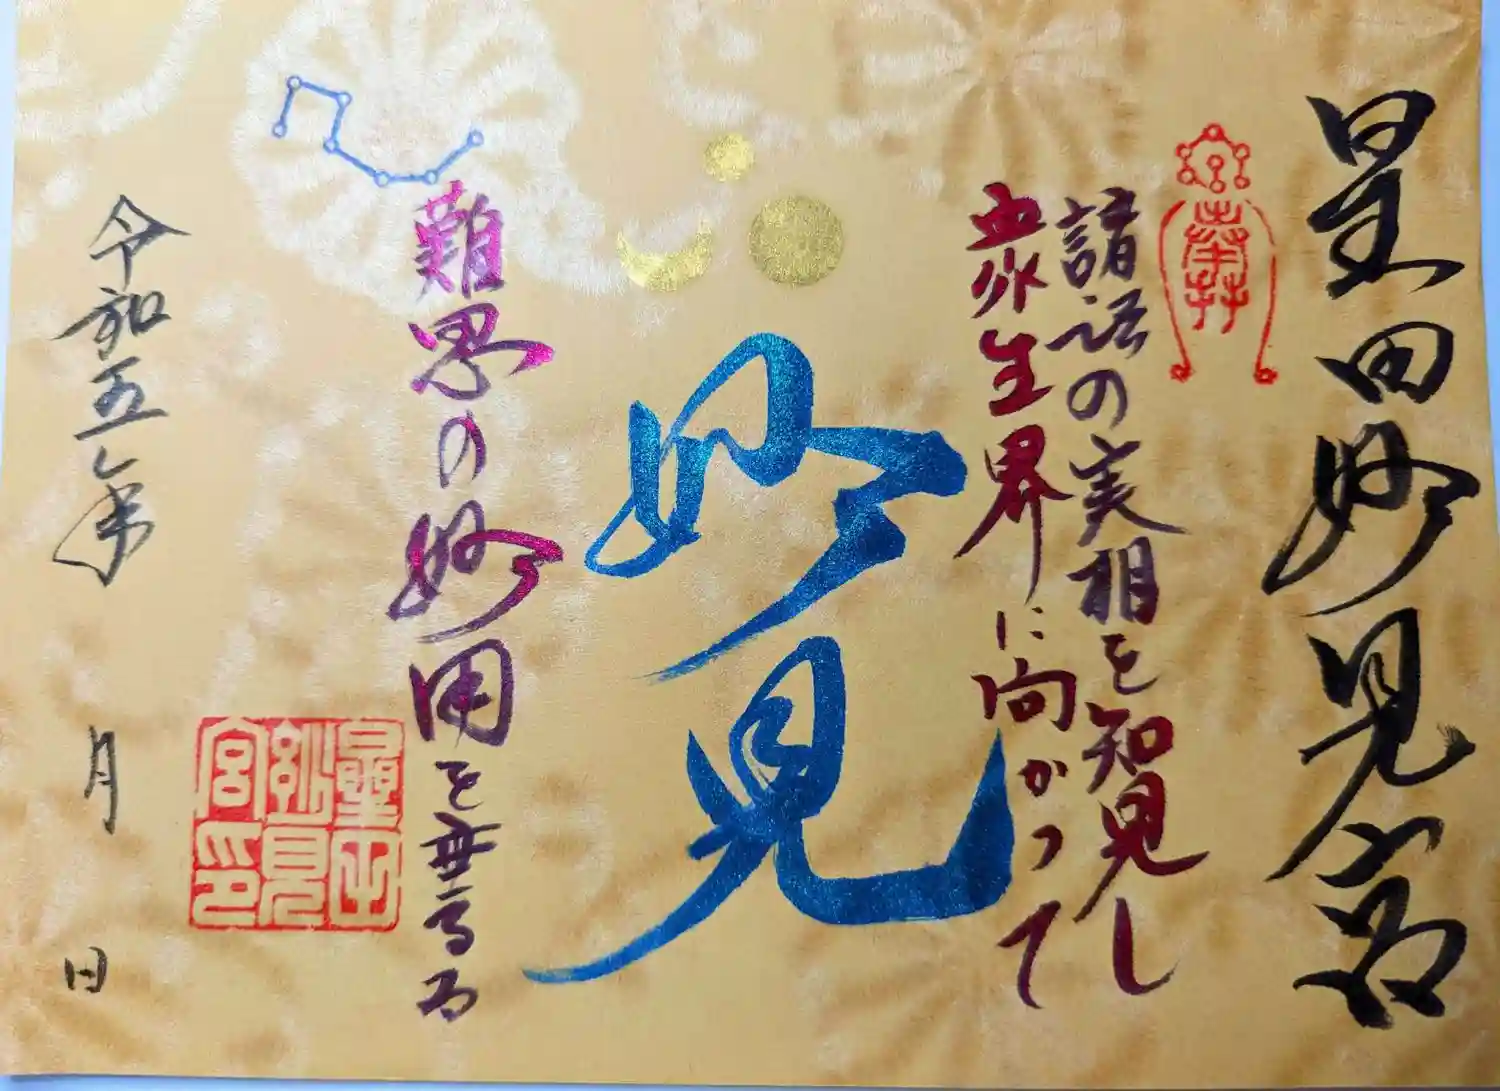 星田妙見宮
諸法の実相を知見し
衆生界に向かって
妙見
難思の妙用を垂るる
令和五年 月 日
星田
妙見
宮印